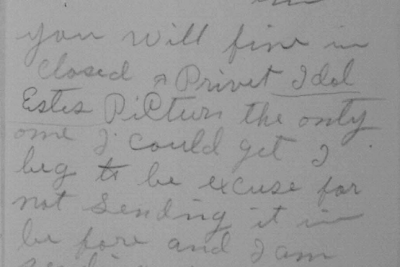 you will fine in
closed a Privet Idol
Estes Picturs the only
one I could get I
beg to be excuse for
not Sending it in
be fore and I am